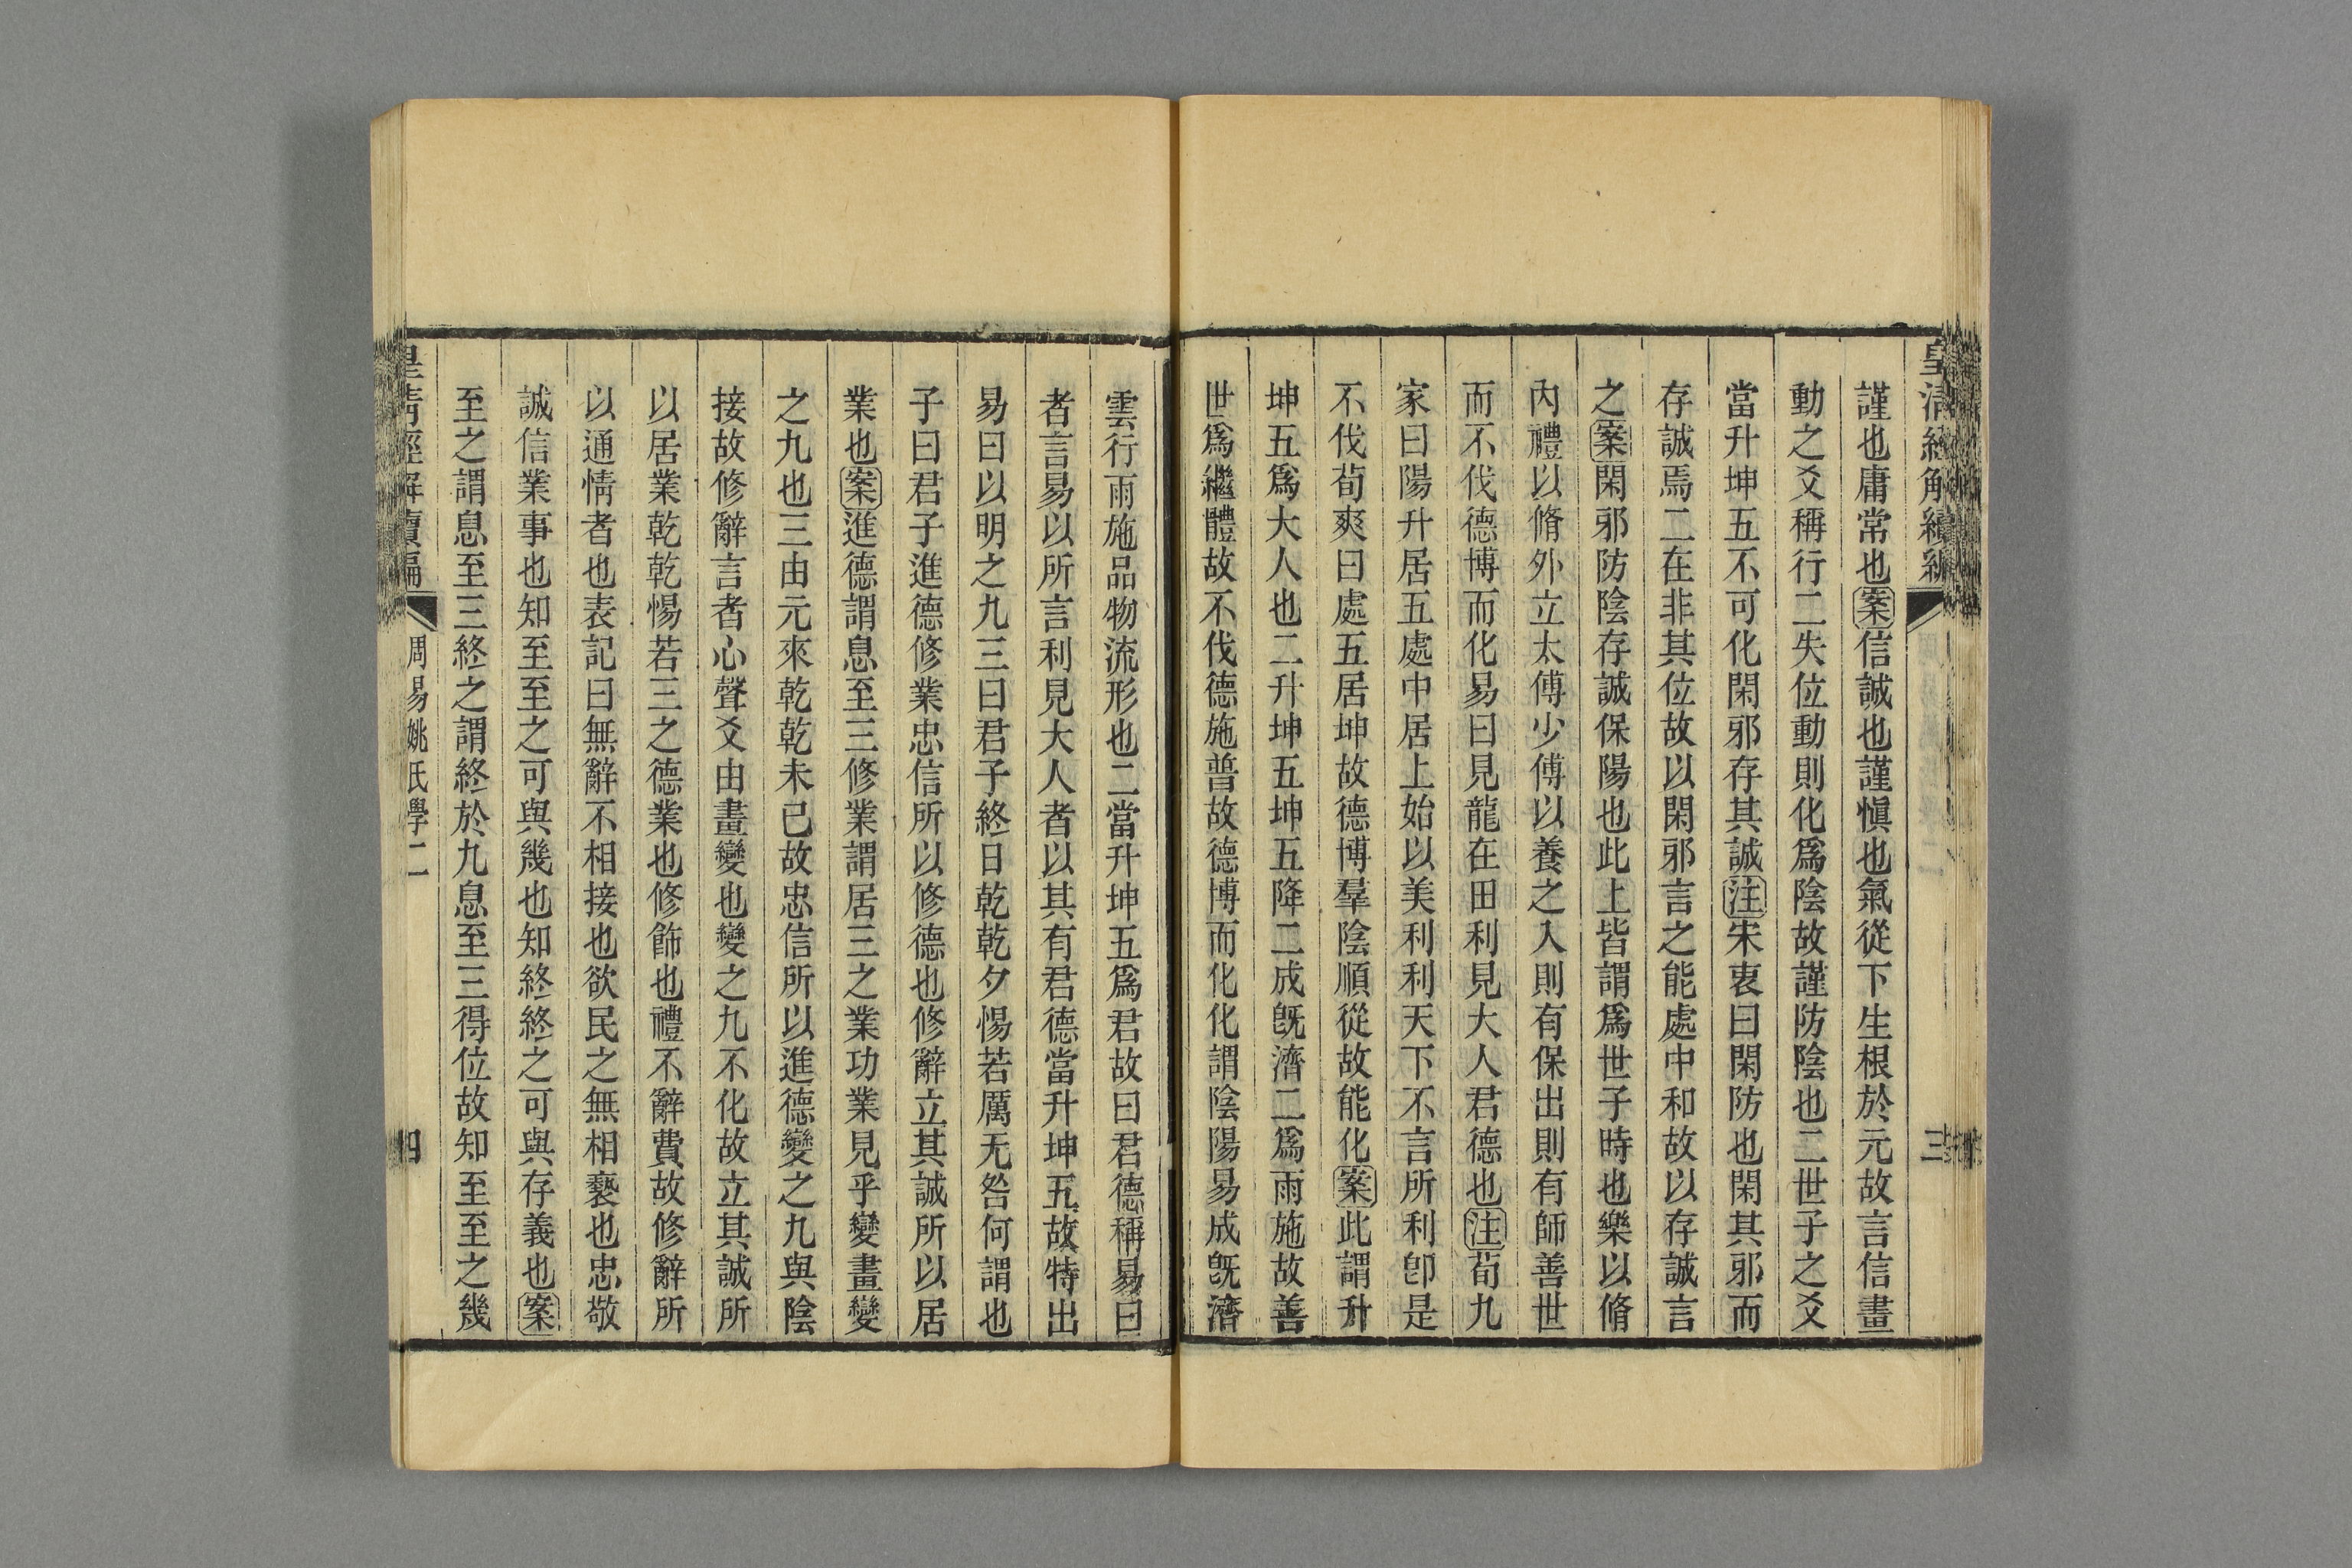 皇清經解續編
三
謹也庸常也案信誠也謹愼也氣從下生根於元故言信畫
動之爻稱行二失位動則化爲陰故謹防陰也二世子之爻
當升坤五不可化閑邪存其誠注宋衷曰閑防也閑其邪而
存誠焉二在非其位故以閑邪言之能處中和故以存誠言
之案閑邪防陰存誠保陽也此上皆謂爲世子時也樂以脩
內禮以脩外立太傅少傅以養之入則有保出則有師善世
而不伐德博而化易曰見龍在田利見大人君德也注荀九
家曰陽升居五處中居上始以美利利天下不言所利卽是
不伐荀爽曰處五居坤故德博羣陰順從故能化案此謂升
坤五爲大人也二升坤五坤五降二成旣濟二爲雨施故善
世爲繼體故不伐德施普故德博而化化謂陰陽易成旣濟
雲行雨施品物流形也二當升坤五爲君故曰君德稱易曰
者言易以所言利見大人者以其有君德當升坤五故特出
易曰以明之九三曰君子終日乾乾夕惕若厲无咎何謂也
子曰君子進德修業忠信所以修德也修辭立其誠所以居
業也案進德謂息至三修業謂居三之業功業見乎變畫變
之九也三由元來乾乾未已故忠信所以進德變之九與陰
接故修辭言者心聲爻由畫變也變之九不化故立其誠所
以居業乾乾惕若三之德業也修飾也禮不辭費故修辭所
以通情者也表記曰無辭不相接也欲民之無相褻也忠敬
誠信業事也知至至之可與幾也知終終之可與存義也案
至之謂息至三終之謂終於九息至三得位故知至至之幾
皇清經解續編
周易姚氏學二
四